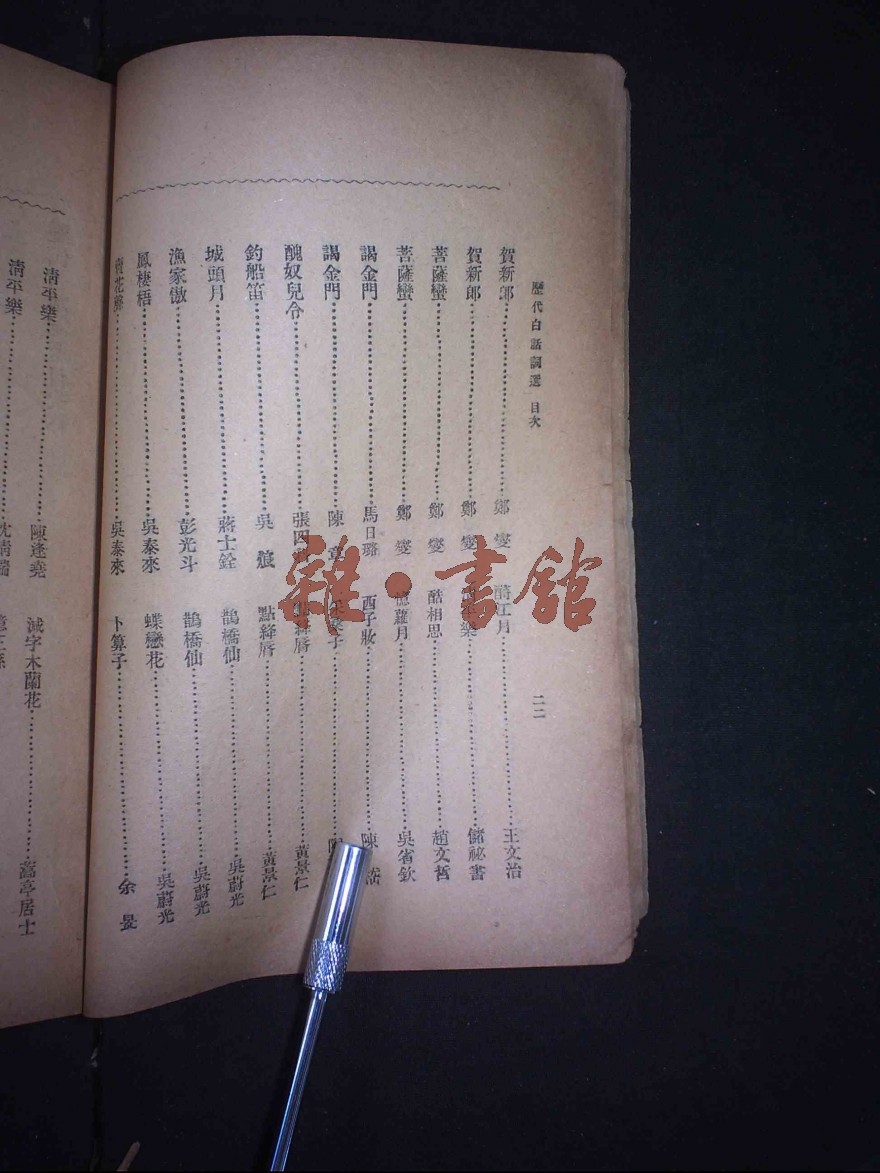 歷代白話詞選 目次 二二
賀新郎 鄭燮 醉江月 王文治
賀新郎 鄭燮 儲祕書
菩薩蠻 鄭燮 酷相思 趙文哲
菩薩蠻 鄭燮 憶蘿月 吳省欽
謁金門 馬日璐 西子妝 陳
謁金門 陳章 采桑子
醜奴兒令 張四科 點絳唇 黃景仁
釣船笛 吳烺 點絳唇 黃景仁
城頭月 蔣士銓 鵲橋仙 吳蔚光
漁家傲 彭光斗 鵲橋仙 吳蔚光
鳳棲梧 吳泰來 蝶戀花 吳蔚光
賣花聲 吳泰來 卜算子 余
清平樂 陳逢堯 減字木蘭花 嵩亭居士
清平樂
雜·書館